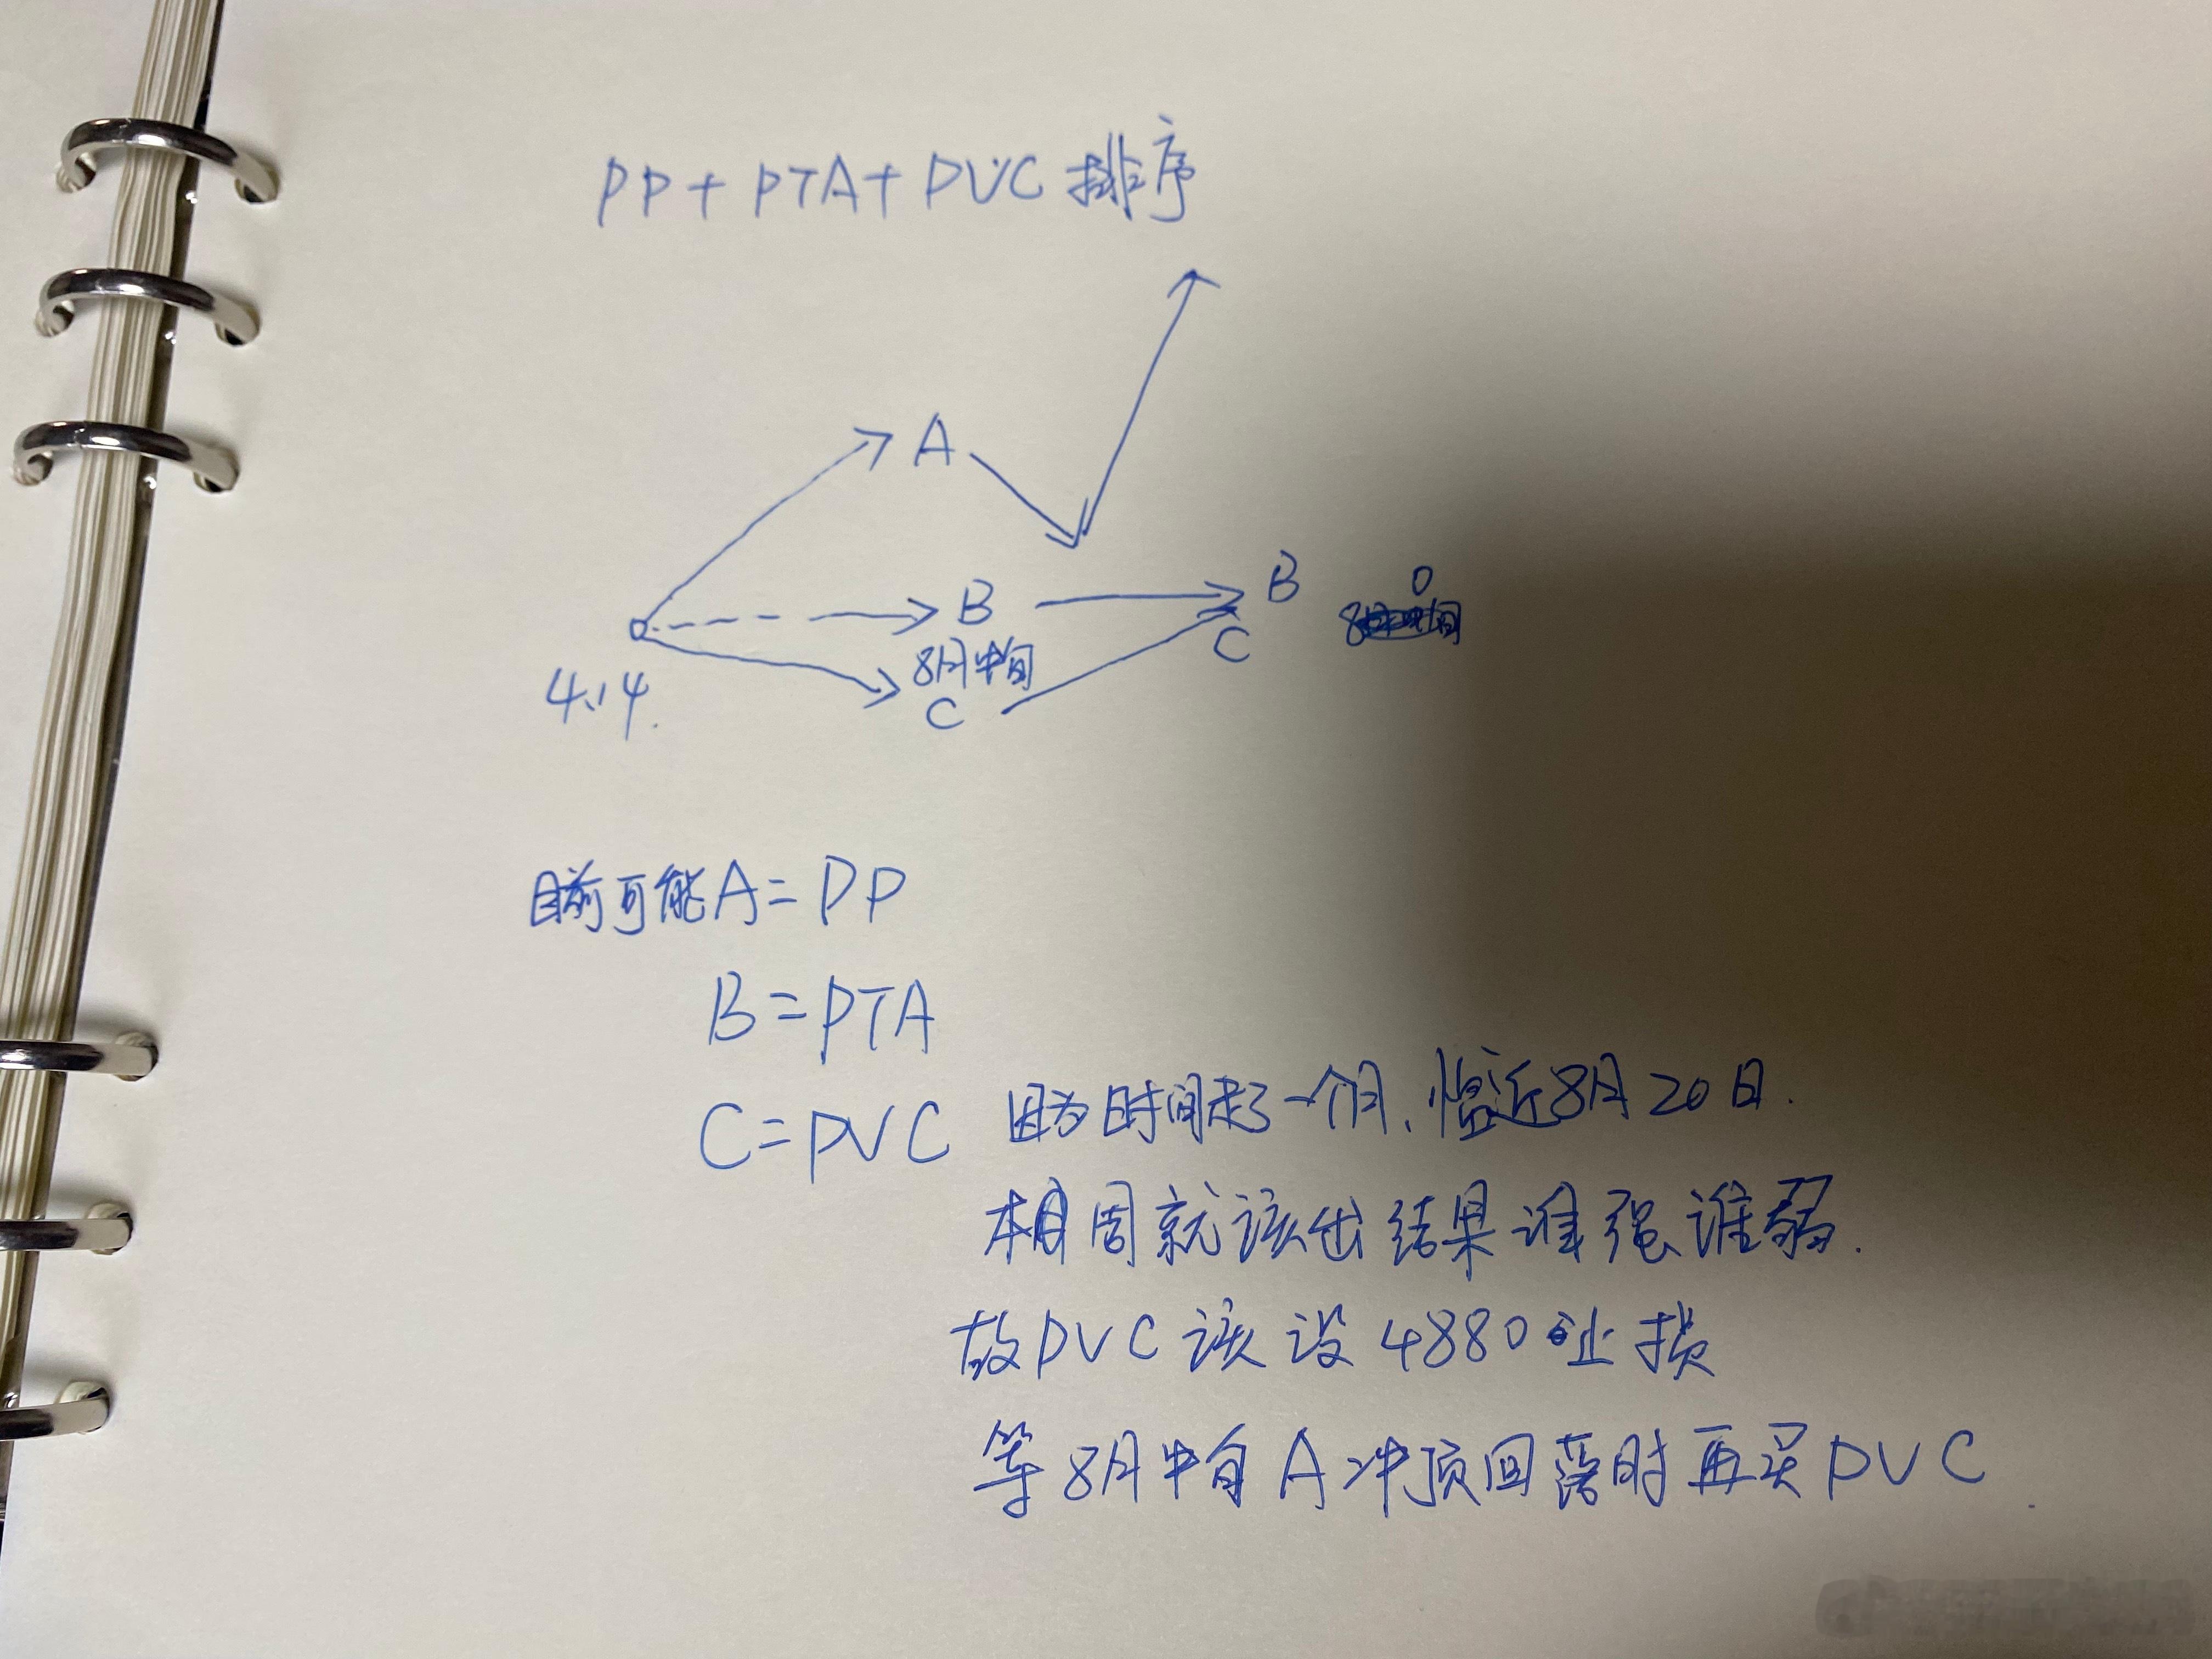 PP+PTA+PVC排序
A
B
B
8月中旬
C
C
4.14.
目前可能A=PP
B=PTA
C=PVC
因为时间走了一个月、临近8月20日.
本周就该出结果谁强谁弱.
故PVC该设4880止损
等8月中旬A冲顶回落时再买PVC.